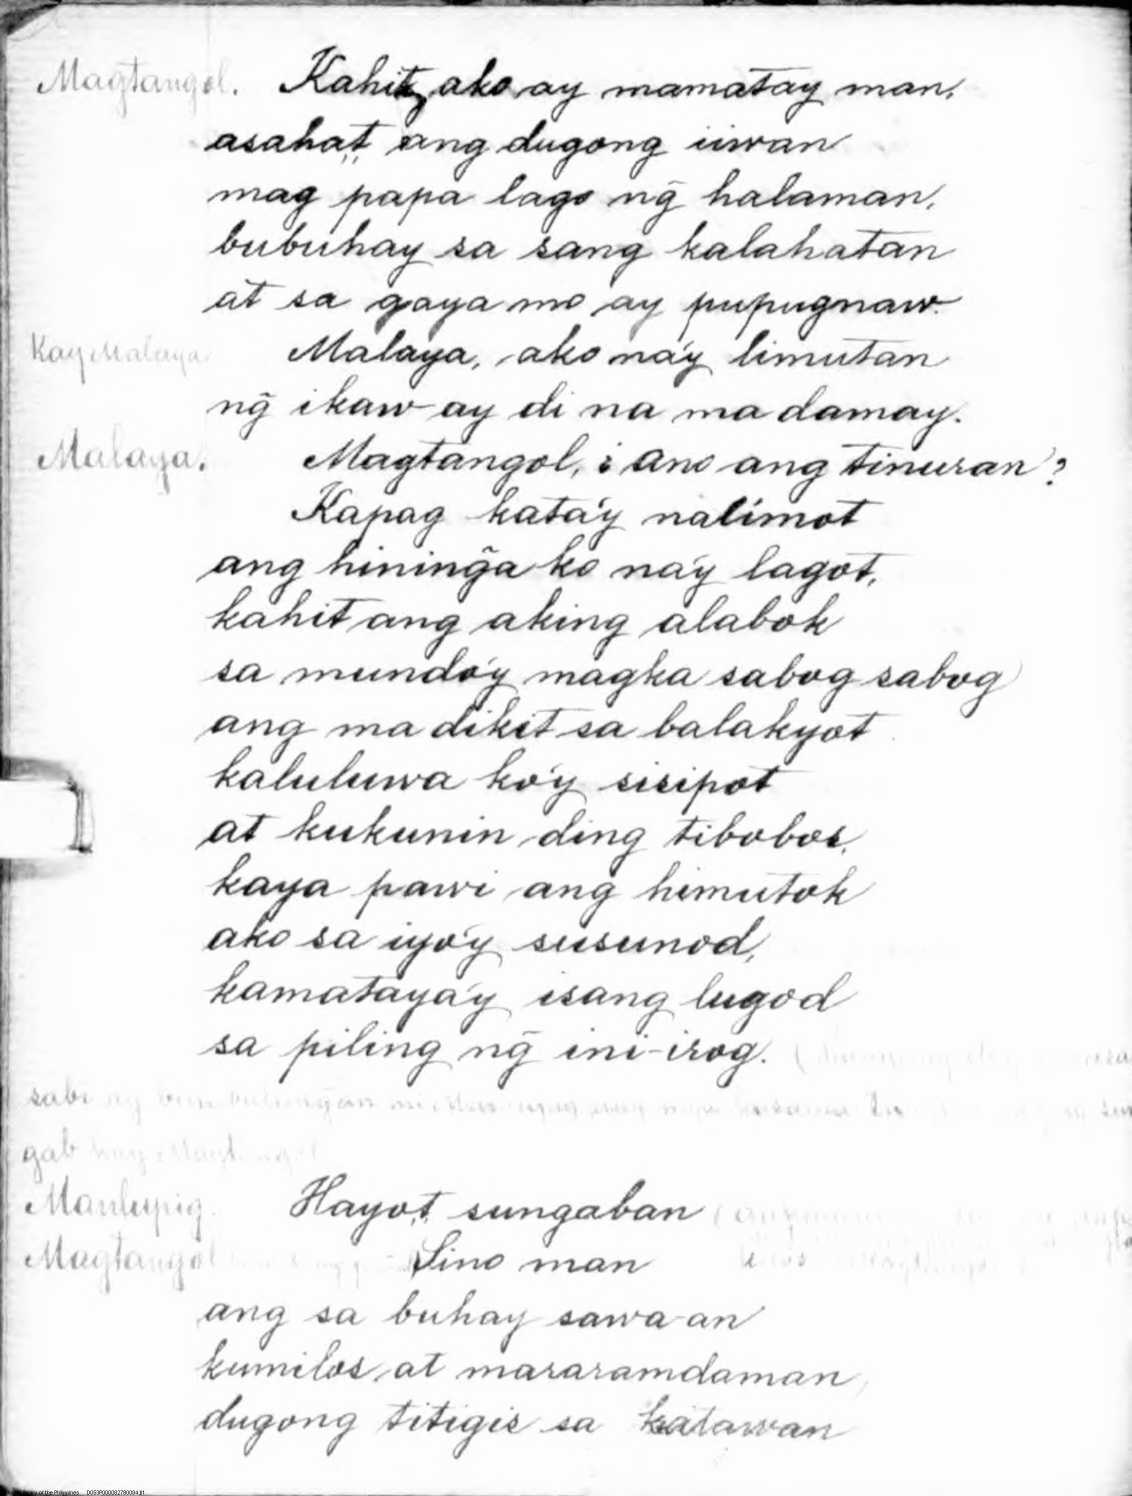 Magtangol. Kahit, ako ay mamatay man,
asahat ang dugong iiwan
mag papa lago ng̃ halaman,
bubuhay sa sang kalahatan
at sa gaya mo ay pupugnaw.
Kay Malaya Malaya, ako na'y limutan
ng̃ ikaw ay di na ma damay.
Malaya. Magtangol, ¿ ano ang tinuran?
Kapag kata'y nalimot
ang hining̃a ko na'y lagot,
kahit ang aking alabok
sa mundo'y magka sabog sabog
ang ma dikit sa balakyot
kaluluwa ko'y sisipot
at kukunin ding tibobos,
kaya pawi ang himutok
ako sa iyo'y susunod,
kamataya'y isang lugod
sa piling ng̃ ini-irog.
sabi ay
gab kay Magtangol
Manlupig. Hayo,t sungaban
Magtangol Sino man
ang sa buhay sawa-an
kumilos at mararamdaman
dugong titigis sa katawan